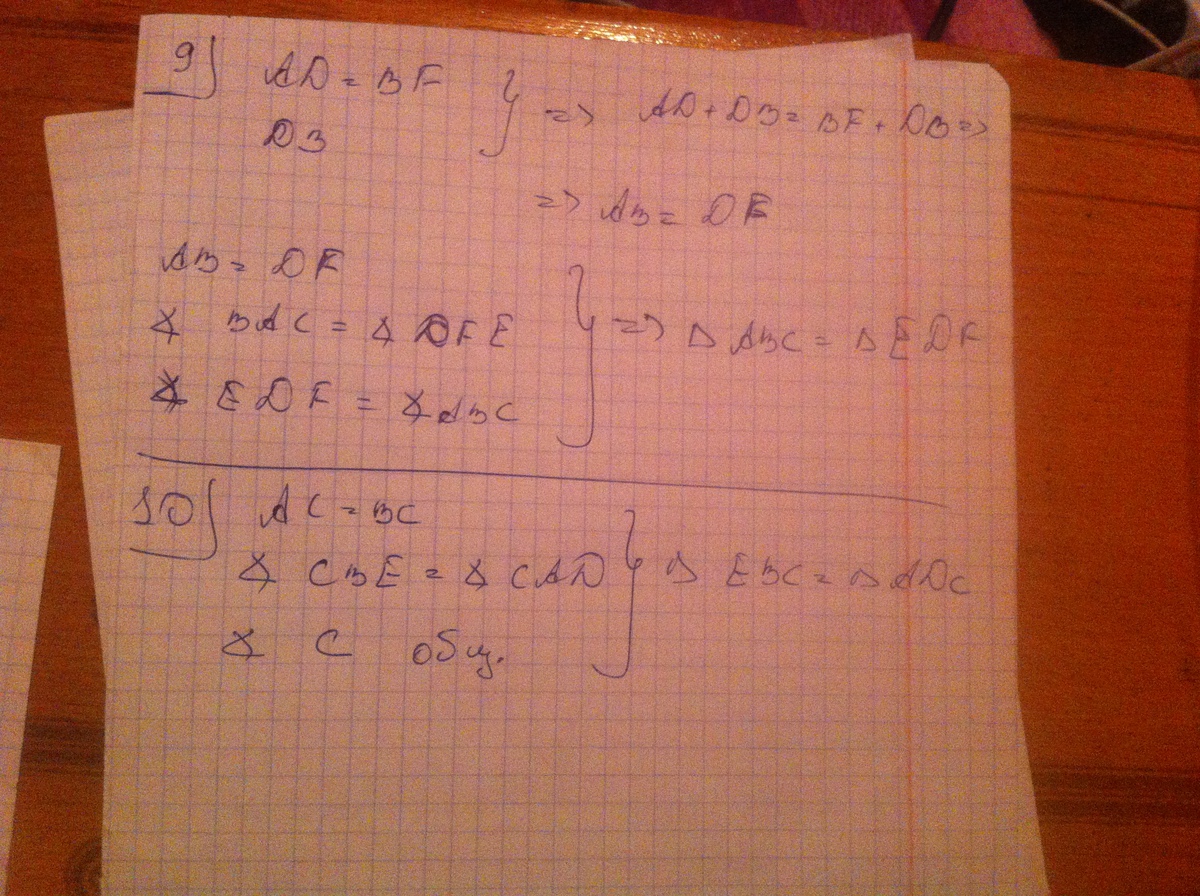 9) AD = BF
DB } => AD + DB = BF + DB =>
=> AB = DF
AB = DF
∡ BAC = ∡ DFE } => △ ABC = △ EDF
∡ EDF = ∡ ABC
10) AC = BC
∡ CBE = ∡ CAD } △ EBC = △ ADC
∡ C общ.